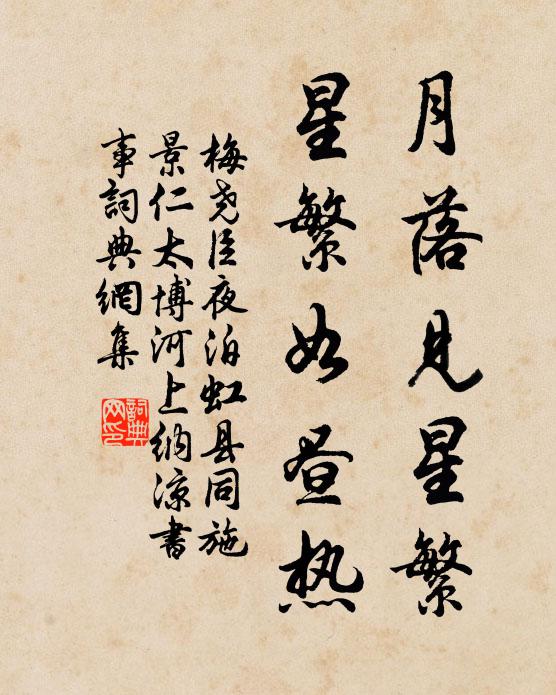 月落见星繁
星繁如昼热
梅尧臣夜泊虹县同施
景仁太博河上纳凉书
事詞典網集
詞典网印